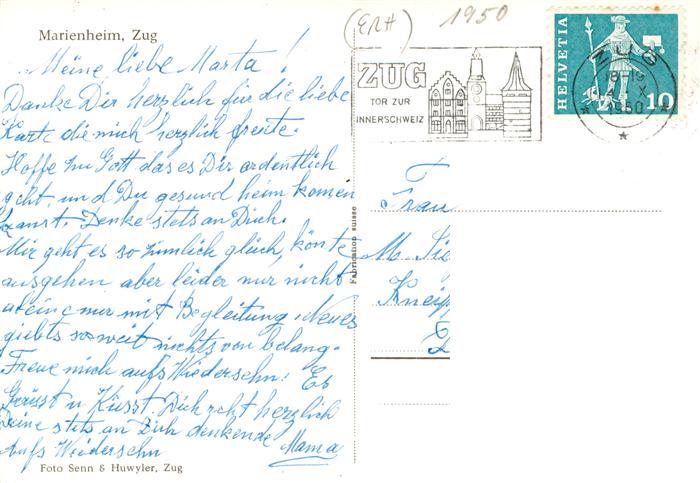 Marienheim, Zug
Meine liebe Marta!
Danke Dir herzlich für die liebe
Karte die mich herzlich freute.
Hoffe zu Gott das es Dir ordentlich
geht, und Du gesund heim komen
kanst. Denke stets an Dich.
Mir geht es so zimlich glich, könte
ausgehen aber leider nur nicht
aleine nur mit Begleitung. Neues
giebts soweit nichts von belang.
Freue mich aufs Wiedersehn! Es
Grüsst u Küsst Dich recht herzlich
Deine stets an Dich denkende Mama
Aufs Wiedersehn
Foto Senn & Huwyler, Zug
Fabrication suisse
(ERH) 1950
ZUG
TOR ZUR
INNERSCHWEIZ
HELVETIA
10
ZUG
18-19
X
1950
Frau
M. Sie
Kneip